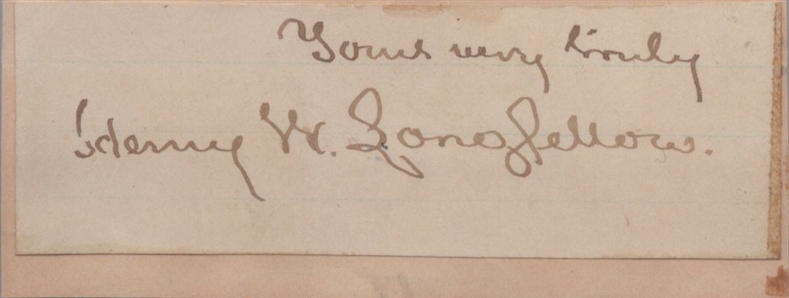 Yours very truly
Henry W. Longfellow.